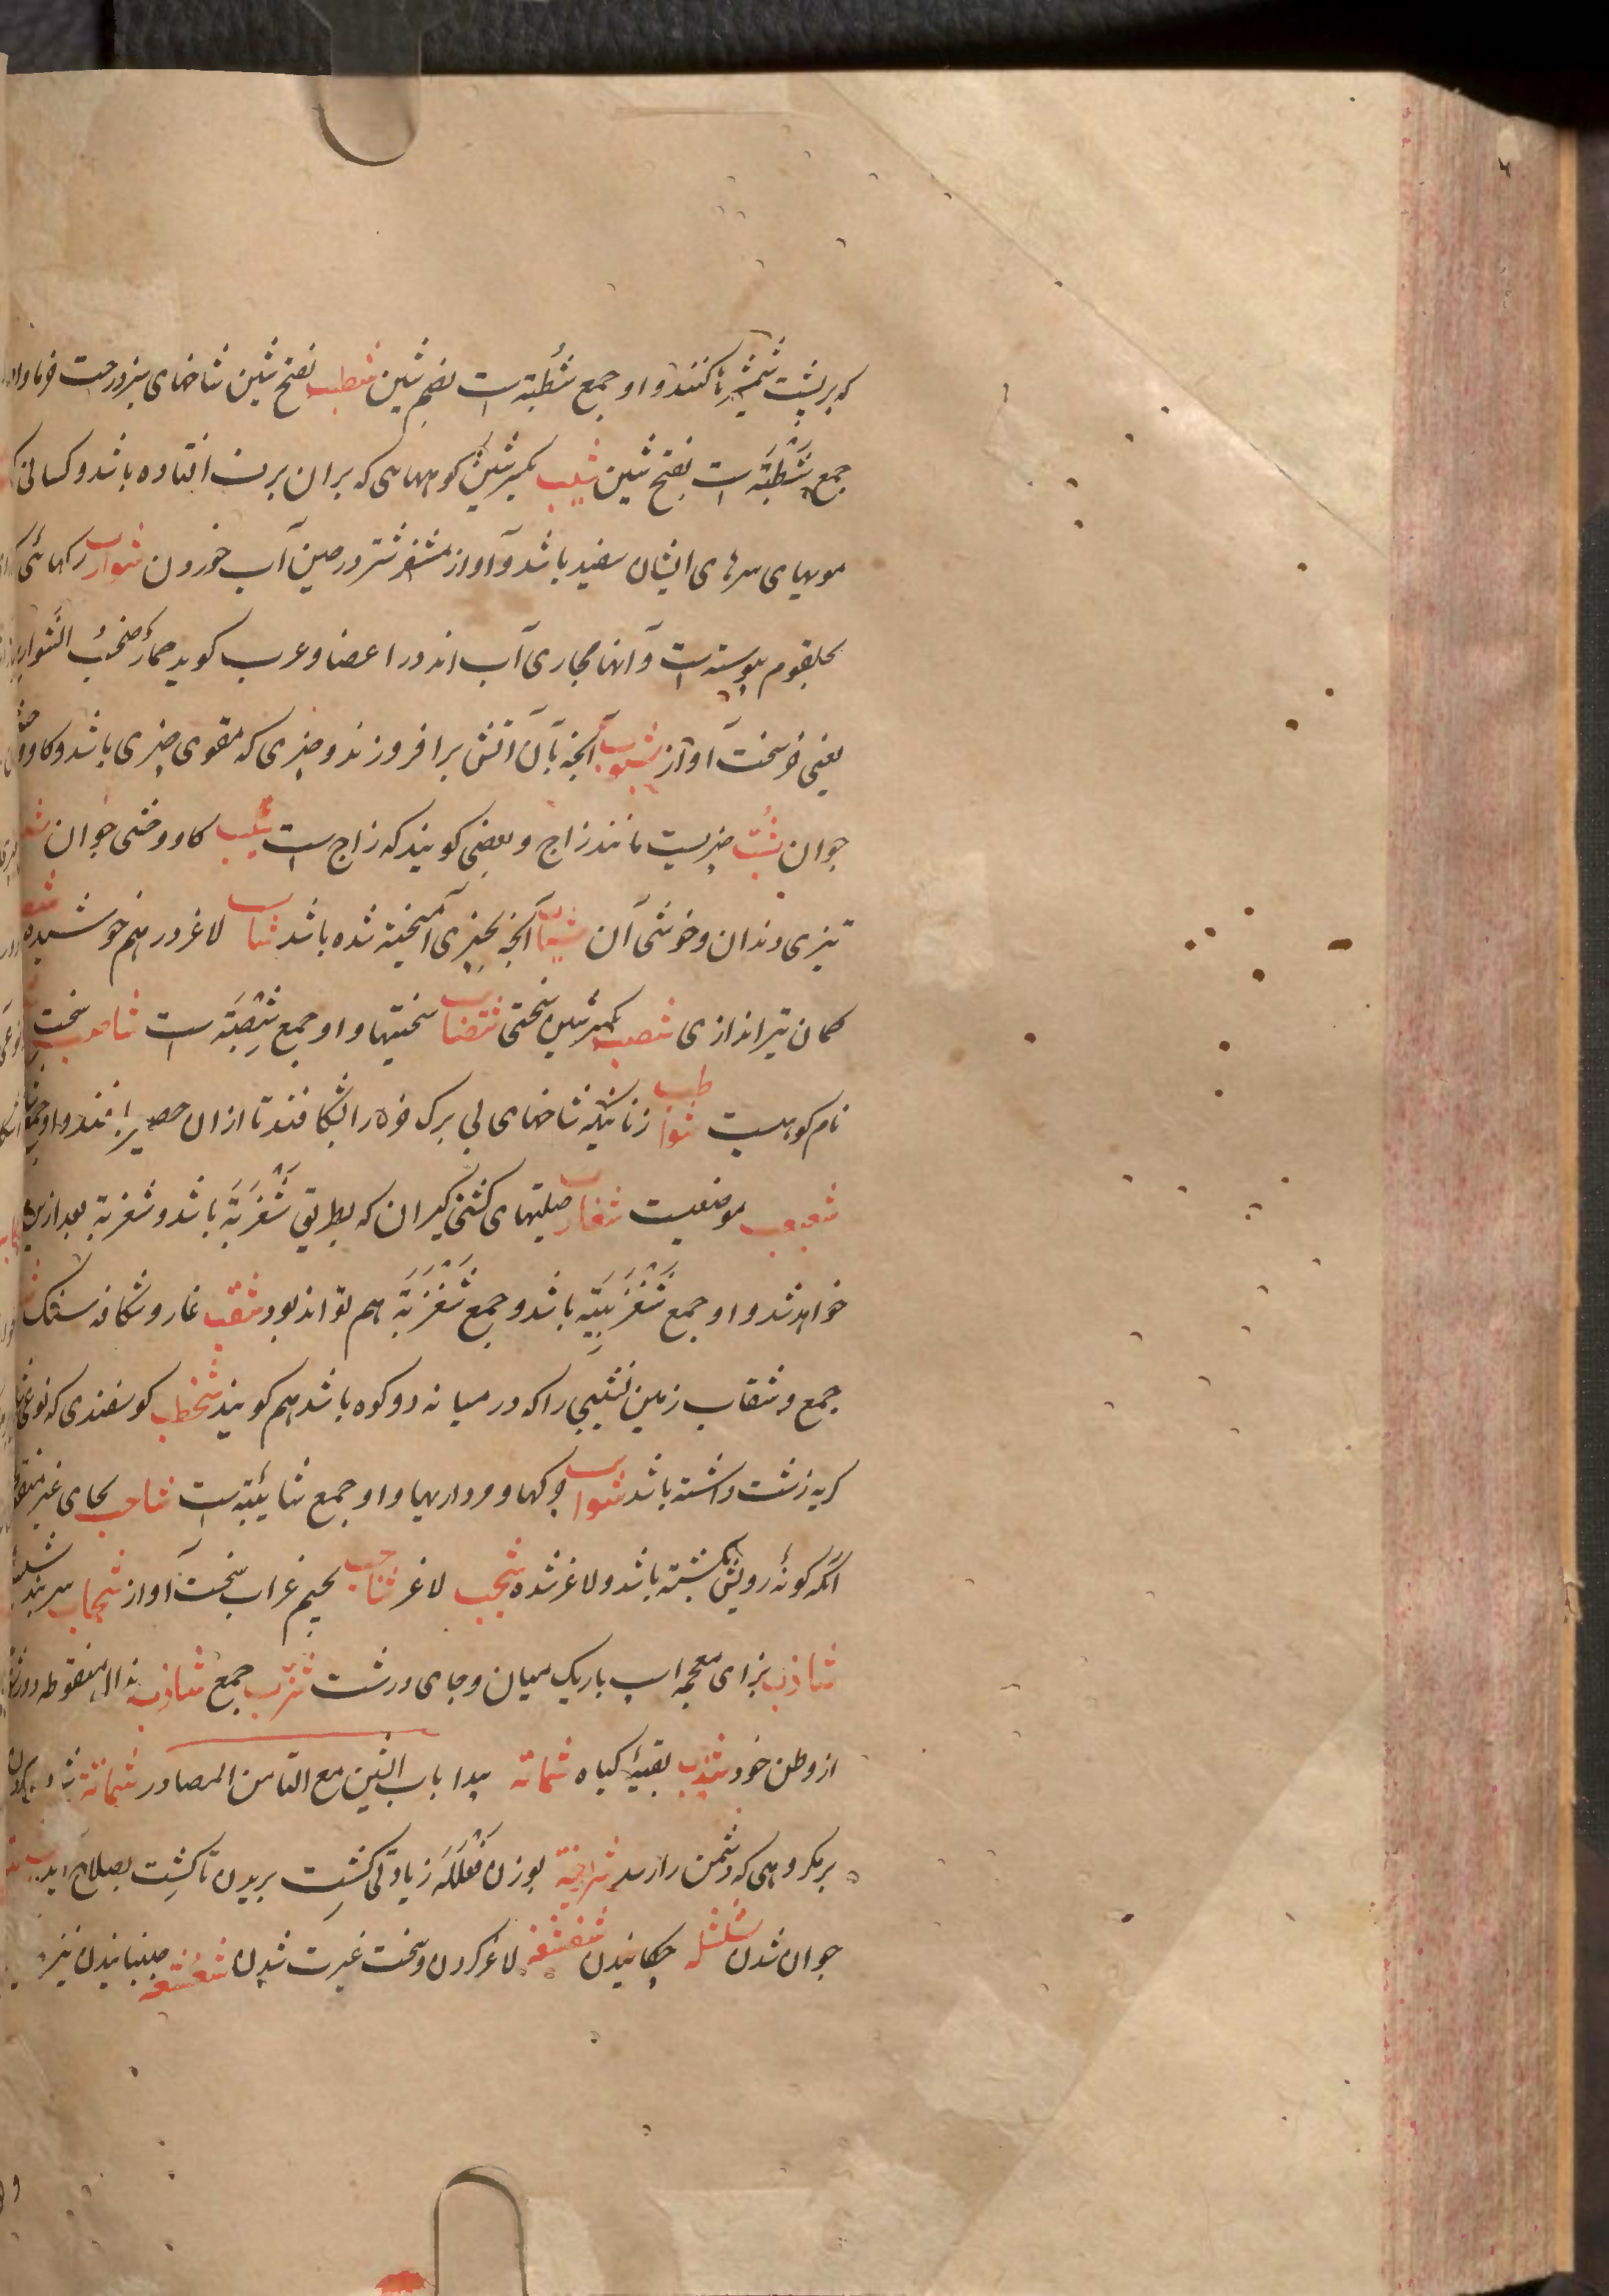 که بر پشت شمشیر ها کنند و او جمع شُطْبَة است بضم شین شطب بفتح شین شاخهای سبز درخت خرما و او
جمع شَطْبَة است بفتح شین شیب بکسر شین کوههای که بران برف افتاده باشد و کسانی که
مویهای سرهای ایشان سفید باشد و آواز مشفر شتر در حین آب خوردن شوارب رکهائی که
بحلقوم پیوسته است و آنها مجاری آب اند در اعضا و عرب کوید حمارٌ صَخِبُ الشَّوارب
یعنی خر سخت آواز شبوب آنچه بآن آتش برافروزند و چیزی که مقوی چیزی باشد و کاو وحشی
جوان شَبّ چیزیست مانند زاج و بعضی کویند که زاج است شبب کاو وحشی جوان
تیزی دندان و خوشی آن شیب آنچه بچیزی آمیخته شده باشد شاسب لاغر و درهم خوشیده
کمان تیراندازی شصب بکسر شین سختی شصاب سختیها و او جمع شِصْبَة است شاصب سخت
نام کوهیست شواطب زنانیکه شاخهای بی برک خرما را بشکافند تا ازان حصیر بافند و او جمع
شعبعب موضعیست شغارب حیلتهای کشتی کیران که بطریق شَغْزَبَة باشد و شغزبة بعد ازین
خواهد شد و او جمع شَغْزَبِیَّة باشد و جمع شَغْزَبَة هم تواند بود شقب غار و شکاف سنک
جمع و شقاب زمین نشیبی را که در میانه دو کوه باشد هم کویند شخطب کوسفندی که
کریه زشت داشته باشد شوائب چرکها و مردارهیا و او جمع شائبة است شاحب بحای غیر منقوطه
آنکه کونهٔ رویش بکشته باشد و لاغر شده شجب لاغر شاجب بجیم غراب سخت آواز شجاب سربند
شازب بزای معجمه اسپ باریک میان و جای درشت شزب جمع شاذب بذال منقوطه دور
از وطن خود شذب بقیهٔ کیاه شماتة باب الشین مع التا من المصادر شماتة شاد
بمکروهی که دشمن را رسد شرافة بوزن فَعْلَلَة زیادتی کشت بریدن تا کشت بصلاح آید
جوان شدن شلشلة چکانیدن شفشفة لاغر کردن و سخت غیرت شدن شعشعة جنبانیدن نیزه